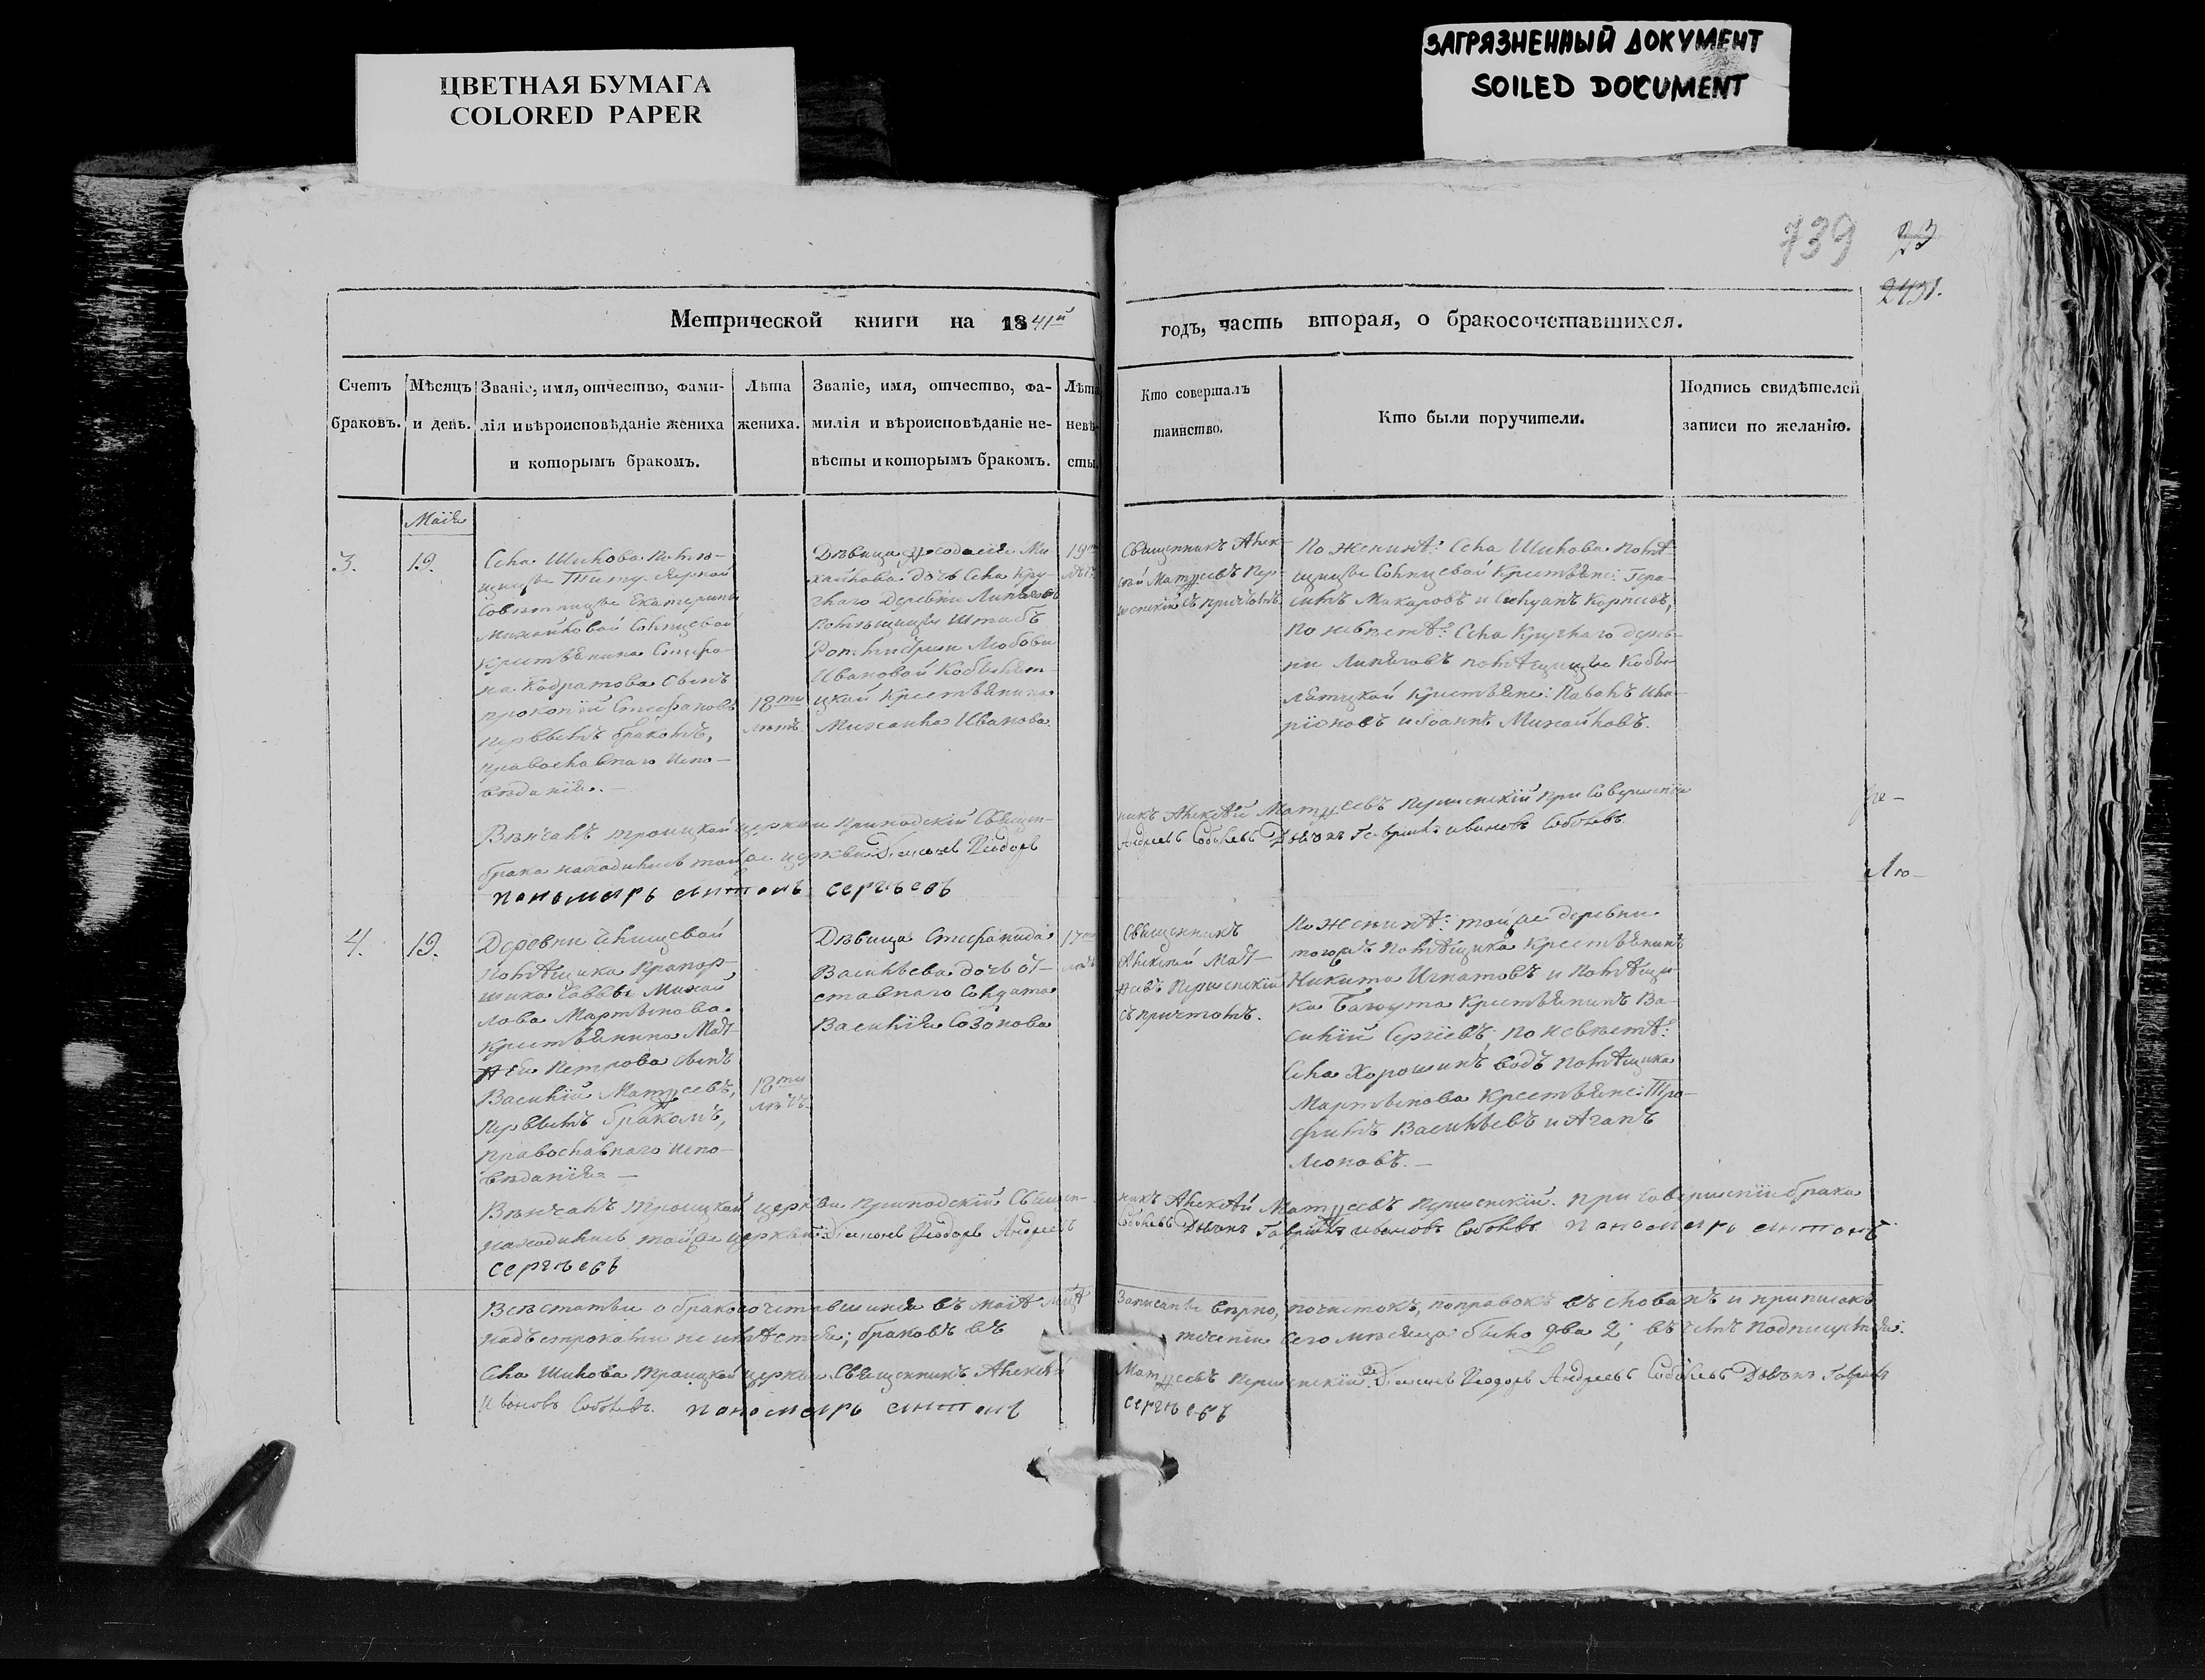 ЦВЕТНАЯ БУМАГА
COLORED PAPER
ЗАГРЯЗНЕННЫЙ ДОКУМЕНТ
SOILED DOCUMENT
739
23
Метрической книги на 1841й
годъ, часть вторая, о бракосочетавшихся.
Счетъ
браковъ.
Мѣсяцъ
и день.
Званіе, имя, отчество, фами-
лія и вѣроисповѣданіе жениха
и которымъ бракомъ.
Лѣта
жениха.
Званіе, имя, отчество, фа-
милія и вѣроисповѣданіе не-
вѣсты и которымъ бракомъ.
Лѣта
невѣ-
сты.
Кто совершалъ
таинство.
Кто были поручители.
Подпись свидѣтелей
записи по желанію.
Маія
3.
19.
Села Шилова помѣ-
щицы Титулярной
Совѣтницы Екатерины
Михайловой Солнцевой
крестьянина Стефа-
на Кодратова сынъ
Прокопій Стефановъ
первымъ бракомъ,
православнаго испо-
вѣданія.—
18ти
лѣтъ.
Дѣвица Ѳеодосія Ми-
хайлова дочь села Кру-
глаго деревни Липяговъ
помѣщицы Штабъ
Ротмистрши Любови
Ивановой Кобылят-
цкой крестьянина
Михаила Иванова
19ти
лѣтъ
Священникъ Алек-
сѣй Матѳеевъ Пер-
съ причтомъ
По женихѣ: села Шилова помѣ-
щицы Солнцевой крестьяне: Гера-
симъ Макаровъ и Корнѣевъ,
по невѣстѣ: села Круглаго дерев-
ни Липяговъ помѣщицы Кобы-
лятцкой крестьяне: Павелъ Ила-
ріоновъ и Іоаннъ Михайловъ.
Вѣнчалъ Троицкой церкви приходскій Священ-
никъ Алексѣй Матѳеевъ при совершеніи
брака находились тойже церкви: Діаконъ Ѳеодоръ
Андреевъ Соболевъ Дьячокъ Гавріилъ Ивановъ Соболевъ
пономарь Антонъ Сергѣевъ
4.
19.
Деревни
помѣщика Прапор-
щика Саввы Михай
лова Мартынова
крестьянина Мат-
ѳѣя Петрова сынъ
Василій Матѳеевъ,
первымъ бракомъ,
православнаго испо-
вѣданія—
18ти
лѣтъ.
Дѣвица Стефанида
Васильева дочь от-
ставнаго Солдата
Василія Созонова
17ти
лѣтъ
Священникъ
Алексѣй Мат-
ѳеевъ
съ причтомъ.
По женихѣ: тойже деревни
тогожъ помѣщика крестьянинъ
Никита Игнатовъ и помѣщи-
ка крестьянинъ Ва-
силій Сергіевъ; по невѣстѣ:
села Хорошихъ водъ помѣщика
Мартынова крестьяне: Тро-
фимъ Васильевъ и Агапъ
Леоновъ.—
Вѣнчалъ Троицкой церкви приходскій Священ-
никъ Алексѣй Матѳеевъ при совершеніи брака
находились тойже церкви: Діаконъ Ѳеодоръ Андреевъ
Соболевъ Дьячокъ Гавріилъ Ивановъ Соболевъ пономарь Антонъ
Сергѣевъ
Всѣ статьи о бракосочетавшихся въ маіѣ
записаны вѣрно, почистокъ, поправокъ въ словахъ и приписокъ
надъ строками не имѣется; браковъ въ
теченіи сего мѣсяца было два 2, въ чемъ подписуемся:
Села Шилова Троицкой церкви Священникъ Алексѣй
Матѳеевъ Діаконъ Ѳеодоръ Андреевъ Соболевъ Дьячокъ Гавріилъ
Ивановъ Соболевъ. пономарь Антонъ
Сергѣевъ